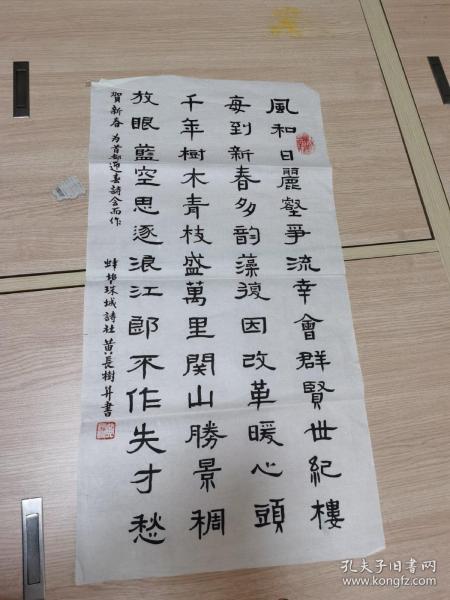 風和日麗壑爭流幸會群賢世紀樓
每到新春多韵藻復因改革暖心頭
千年樹木青枝盛萬里関山勝景稠
放眼藍空思逐浪江郎不作失才愁
賀新春 为首都迎春詩会而作 蚌埠珠城詩社黄長樹并書
孔夫子旧书网
www.kongfz.com